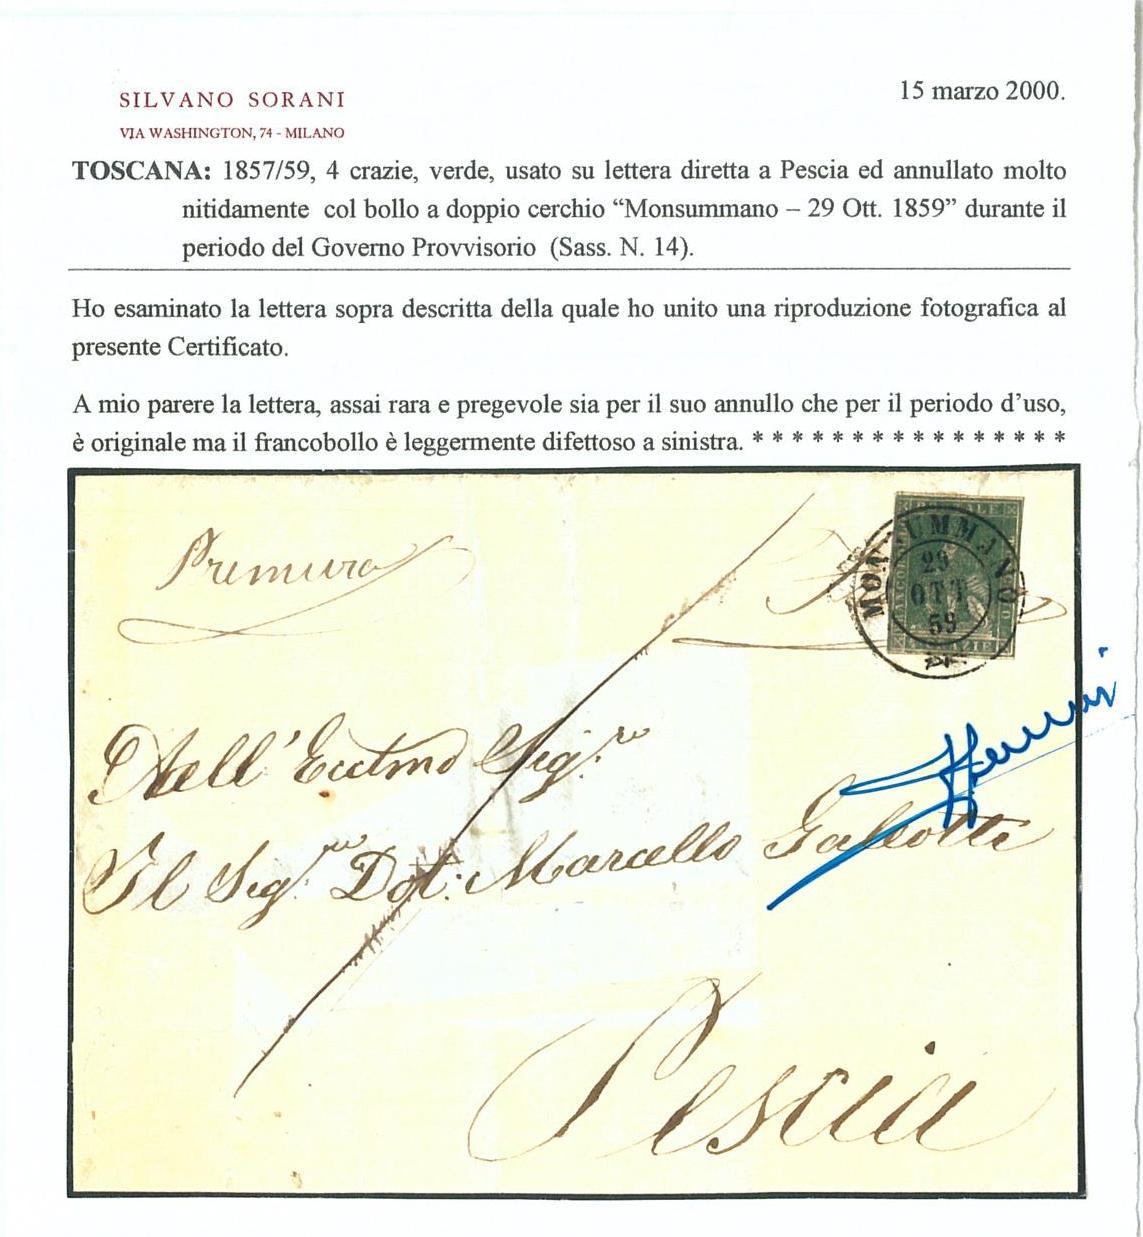 SILVANO SORANI
15 marzo 2000.
VIA WASHINGTON, 74 - MILANO
TOSCANA: 1857/59, 4 crazie, verde, usato su lettera diretta a Pescia ed annullato molto
nitidamente col bollo a doppio cerchio “Monsummano – 29 Ott. 1859” durante il
periodo del Governo Provvisorio (Sass. N. 14).
Ho esaminato la lettera sopra descritta della quale ho unito una riproduzione fotografica al
presente Certificato.
A mio parere la lettera, assai rara e pregevole sia per il suo annullo che per il periodo d’uso,
è originale ma il francobollo è leggermente difettoso a sinistra. * * * * * * * * * * * * * * * *
Premura
MONSUMMANO
29
OTT
59
All' Ecctmo Sig.re
Il Sig.re Dot. Marcello Galeotti
Pescia